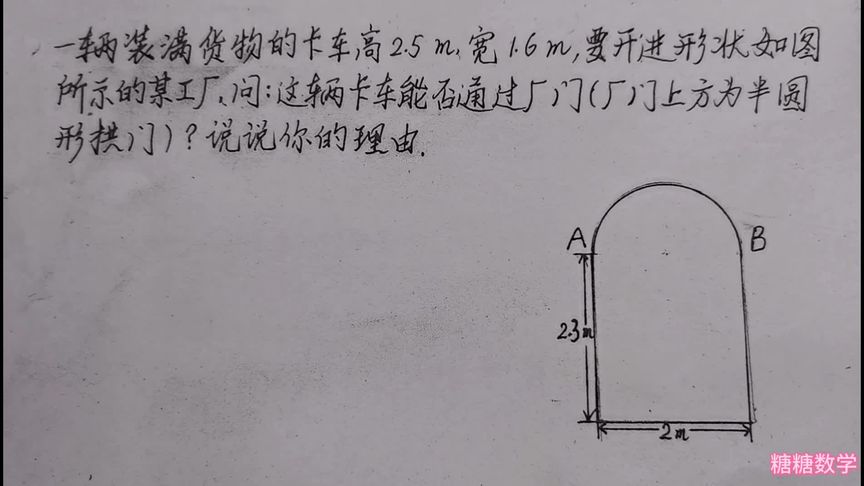 一辆装满货物的卡车,高2.5 m,宽1.6 m,要开进形状如图
所示的某工厂,问:这辆卡车能否通过厂门(厂门上方为半圆
形拱门)?说说你的理由.
A
B
2.3m
2m
糖糖数学